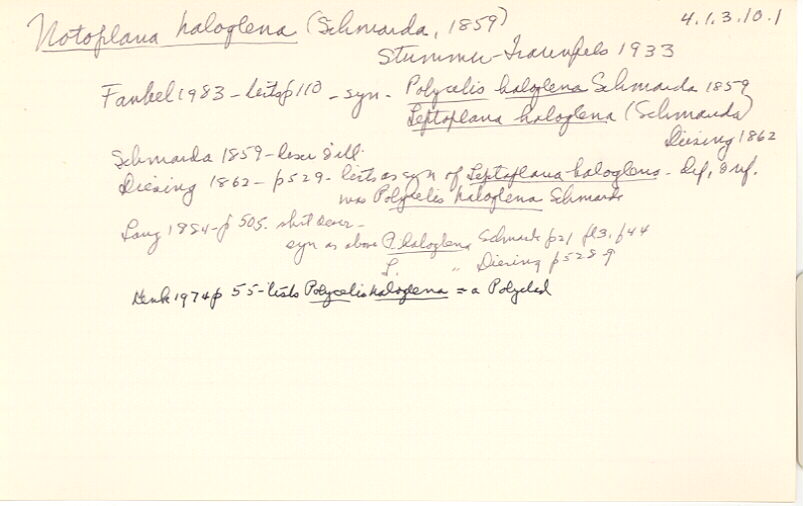 Notoplana haloglena (Schmarda, 1859) 4.1.3.10.1
Stummer-Traunfels 1933
Faubel 1983 - lists p 110 - syn. Polycelis haloglena Schmarda 1859
Leptoplana haloglena (Schmarda)
Diesing 1862
Schmarda 1859 - descr & ill.
Diesing 1862 - p 529 - lists as syn of Leptoplana haloglena - def, & ref.
was Polycelis haloglena Schmarda
Lang 1884 - p 505. short descr -
syn as above P. haloglena Schmarda p21 fl3, f44
L. " Diesing p 528-9
1974 p 55 - lists Polycelis haloglena = a Polyclad